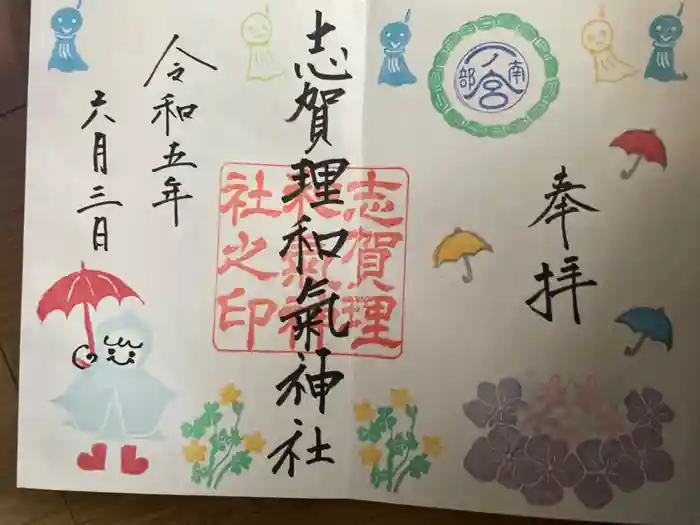 奉拝
南部
一ノ宮
志賀理和氣神社
志賀理
和氣神
社之印
令和五年
六月三日